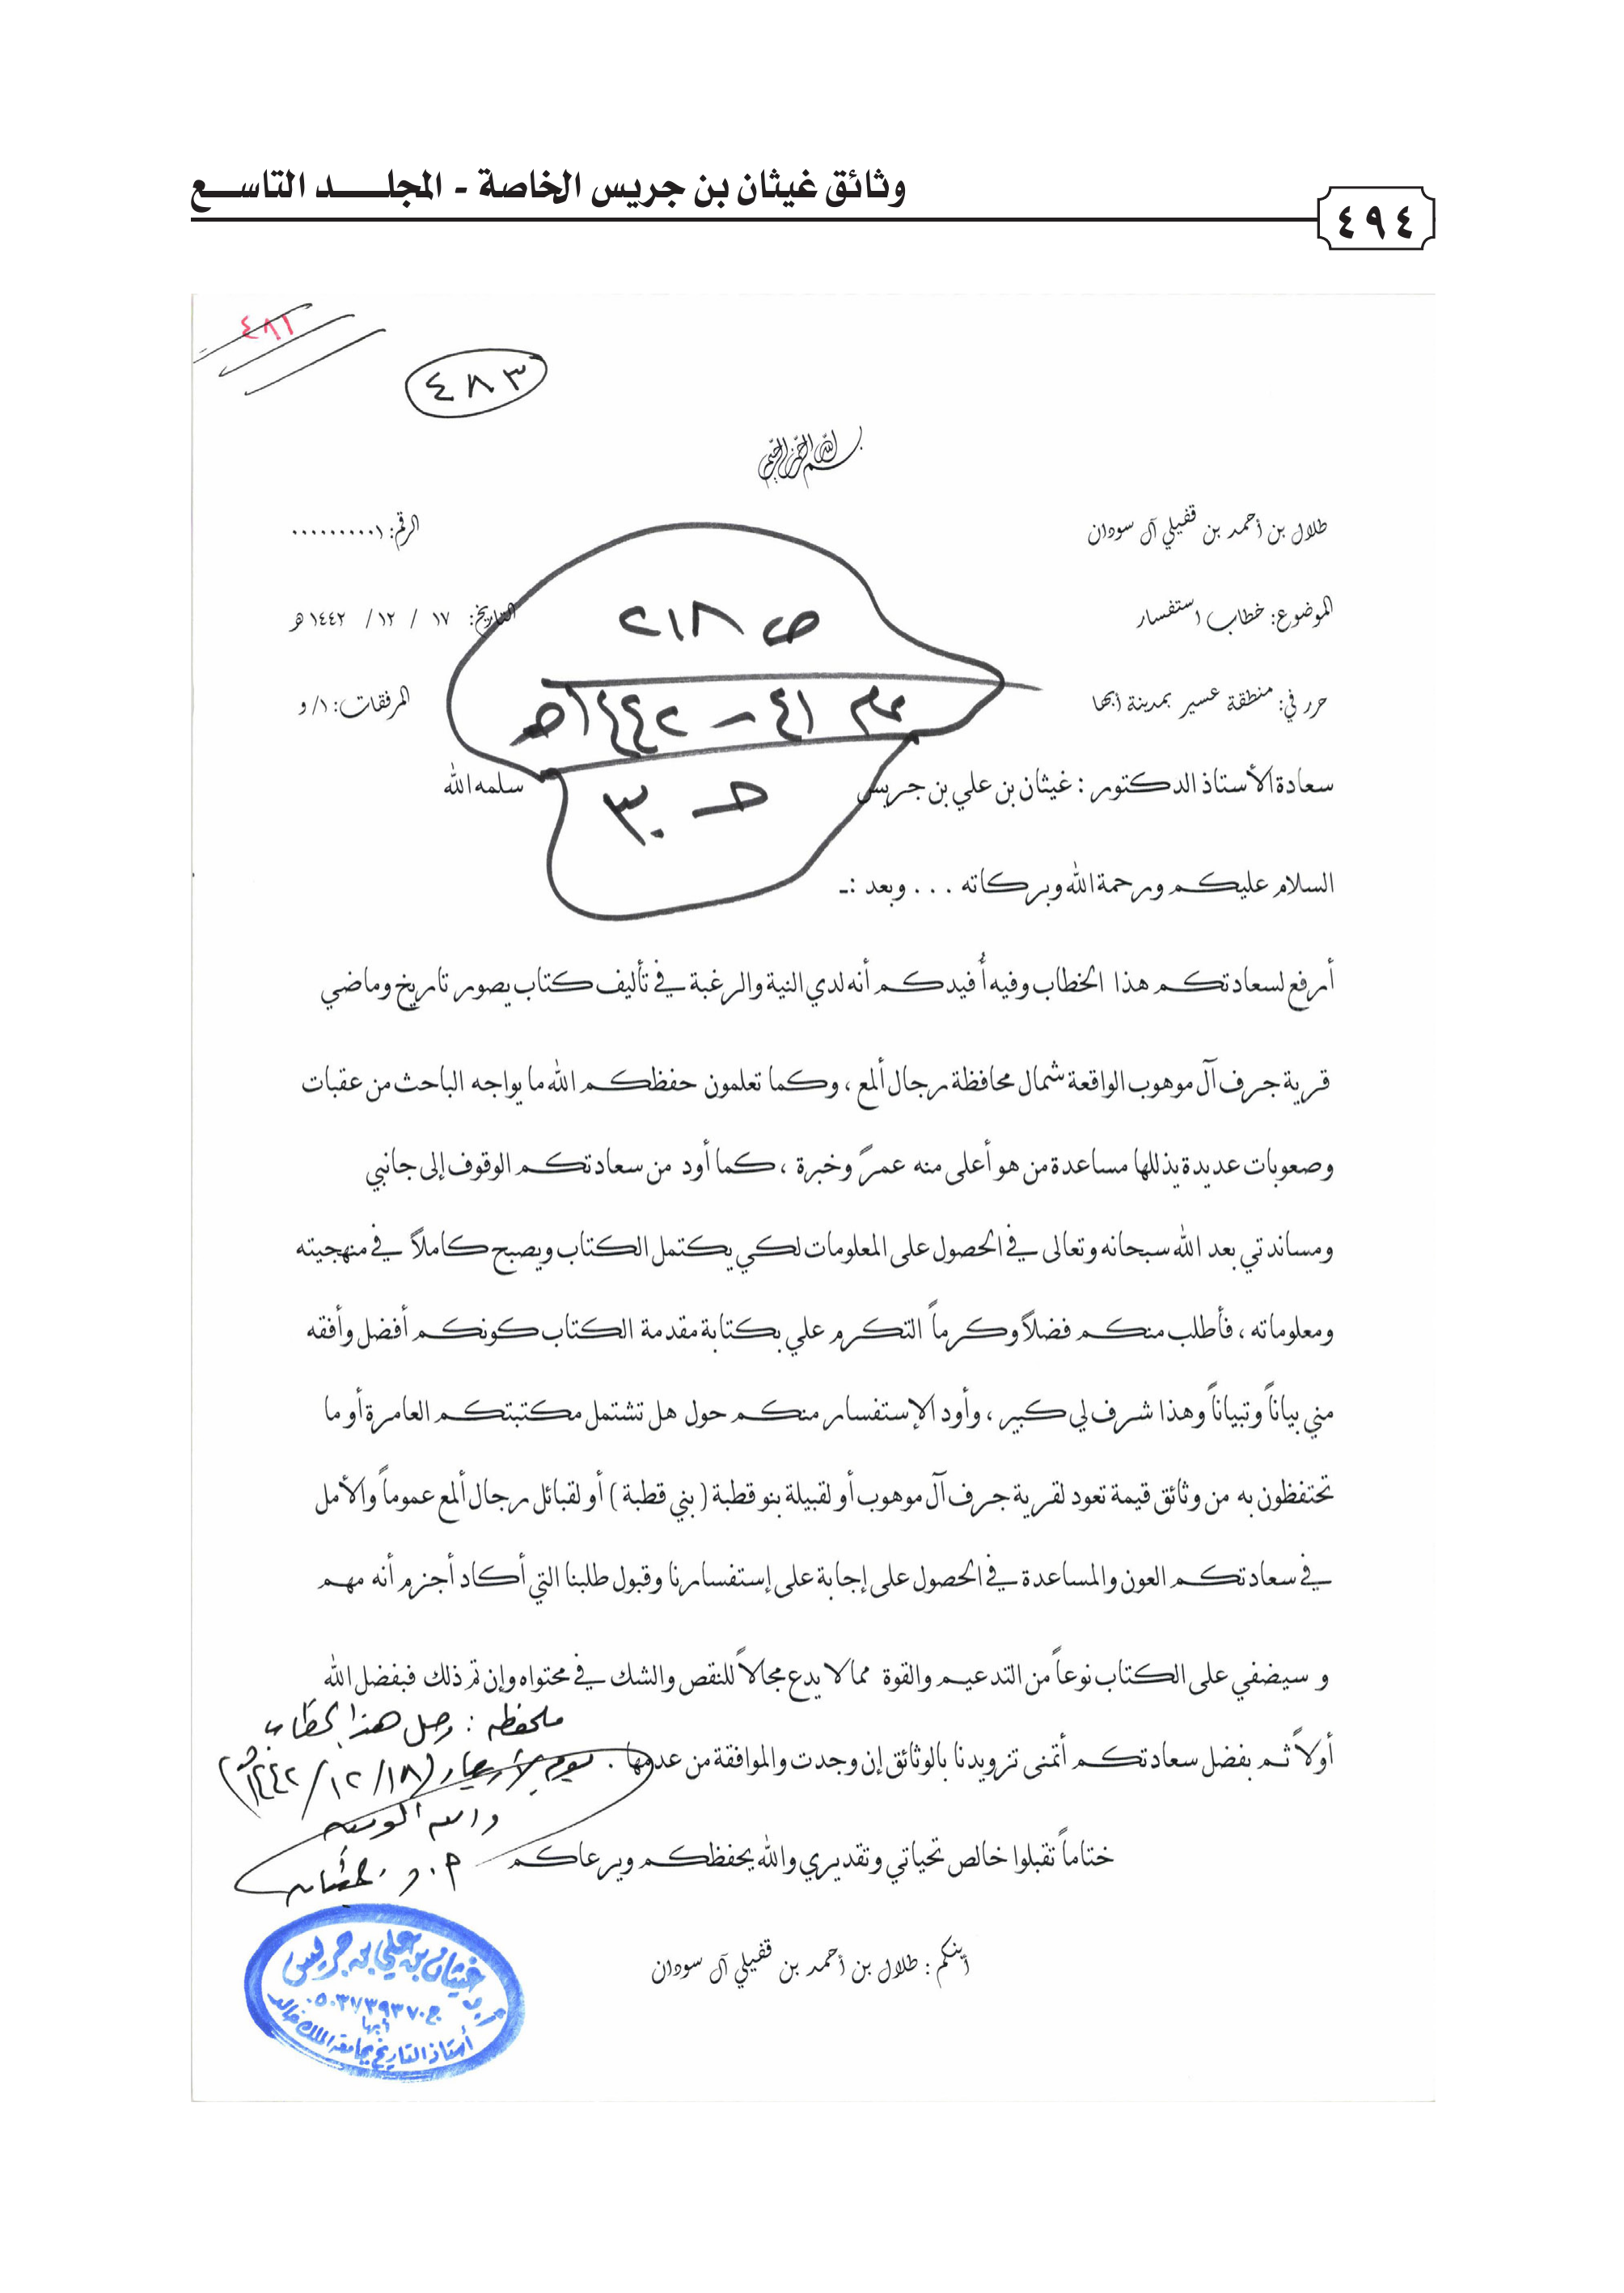 وثائق غيثان بن جريس الخاصة - المجلـــــد التاســـع
٤٩٤
٤٨١
٤٨٣
بسم الله الرحمن الرحيم
طلال بن أحمد بن قفيلي آل سودان
الرقم: ٠٠٠٠٠٠٠٠٠١
الموضوع: خطاب استفسار
التاريخ: ١٧ / ١٢ / ١٤٤٢هـ
حرر في: منطقة عسير بمدينة أبها
المرفقات: ١/ و
ص ٢١٨
عام ٤١ – ١٤٤٢هـ
حـ ٣٠
سعادة الأستاذ الدكتور : غيثان بن علي بن جريس سلمه الله
السلام عليكم ورحمة الله وبركاته . . . وبعد :ـ
أرفع لسعادتكم هذا الخطاب وفيه أُفيدكم أنه لدي النية والرغبة في تأليف كتاب يصور تاريخ وماضي
قرية جرف آل موهوب الواقعة شمال محافظة رجال ألمع ، وكما تعلمون حفظكم الله ما يواجه الباحث من عقبات
وصعوبات عديدة يذللها مساعدة من هو أعلى منه عمرً وخبرة ، كما أود من سعادتكم الوقوف إلى جانبي
ومساندتي بعد الله سبحانه وتعالى في الحصول على المعلومات لكي يكتمل الكتاب ويصبح كاملاً في منهجيته
ومعلوماته ، فأطلب منكم فضلاً وكرماً التكرم علي بكتابة مقدمة الكتاب كونكم أفضل وأفقه
مني بياناً وتبياناً وهذا شرف لي كبير ، وأود الإستفسار منكم حول هل تشتمل مكتبتكم العامرة أو ما
تحتفظون به من وثائق قيمة تعود لقرية جرف آل موهوب أو لقبيلة بنو قطبة ( بني قطبة ) أو لقبائل رجال ألمع عموماً والأمل
في سعادتكم العون والمساعدة في الحصول على إجابة على إستفسارنا وقبول طلبنا التي أكاد أجزم أنه مهم
و سيضفي على الكتاب نوعاً من التدعيم والقوة مما لا يدع مجالاً للنقص والشك في محتواه وإن تم ذلك فبفضل الله
أولاً ثم بفضل سعادتكم أتمنى تزويدنا بالوثائق إن وجدت والموافقة من عدمها .
ملحظه : وصل هذا الخطاب
يوم الأربعاء (١٤٤٢/١٢/١٨هـ)
والله الموفق
أ.د. غيثان
ختاماً تقبلوا خالص تحياتي وتقديري والله يحفظكم ويرعاكم
أبنكم : طلال بن أحمد بن قفيلي آل سودان
أ.د غيثان بن علي بن جريس
ج ٠٥٠٣٧٣٩٣٧٠
أبها
أستاذ التاريخ بجامعة الملك خالد